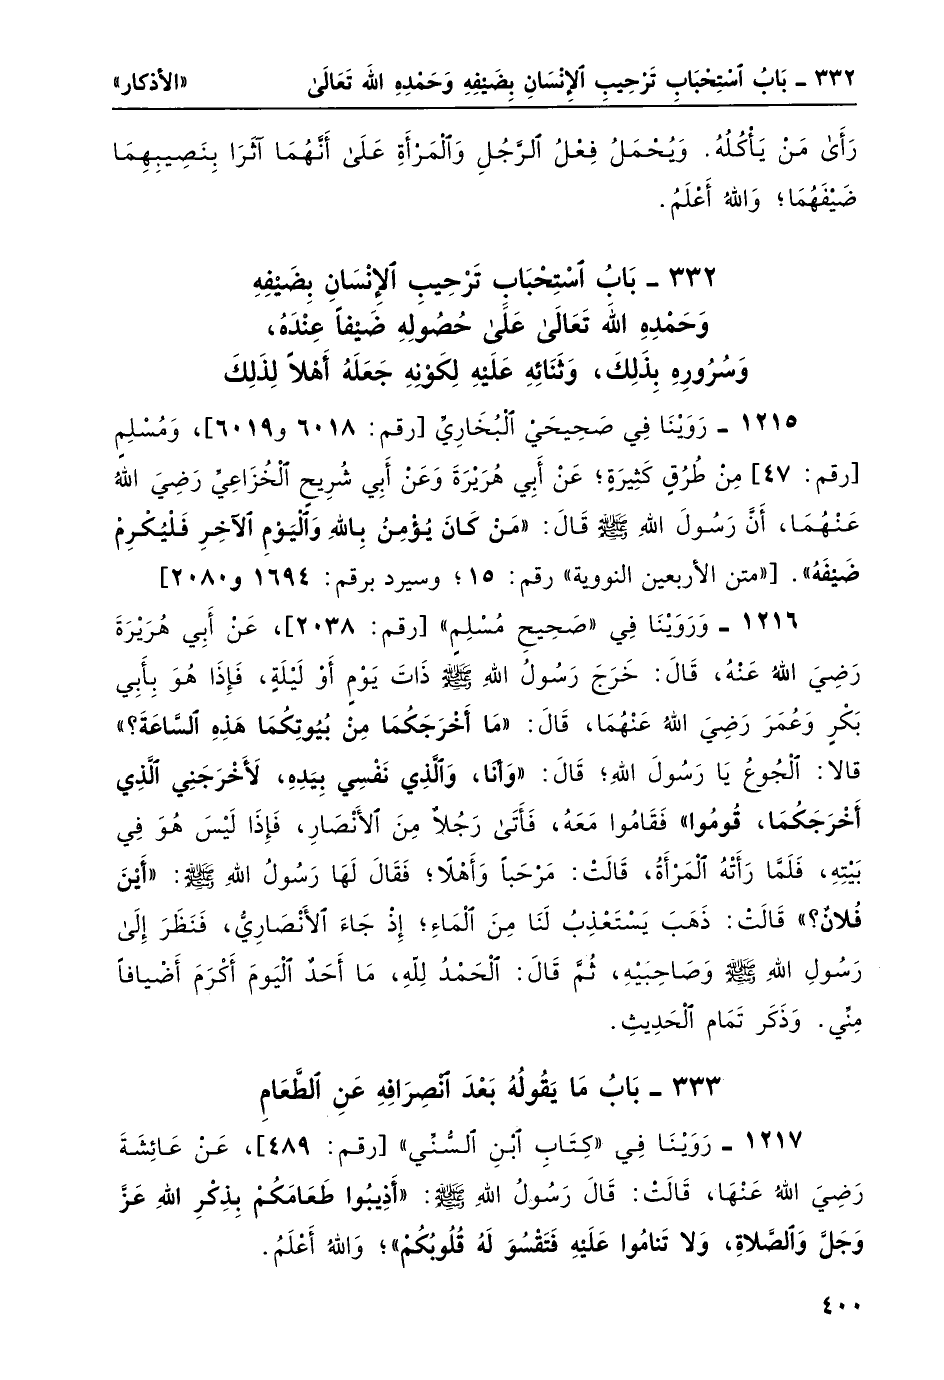 ٣٣٢ - بَابُ ٱسْتِحْبَابِ تَرْحِيبِ ٱلإِنْسَانِ بِضَيْفِهِ وَحَمْدِهِ اللهَ تَعَالَىٰ «الأذكار»
رَأَىٰ مَنْ يَأْكُلُهُ. وَيُحْمَلُ فِعْلُ ٱلرَّجُلِ وَٱلْمَرْأَةِ عَلَىٰ أَنَّهُمَا آثَرَا بِنَصِيبِهِمَا
ضَيْفَهُمَا؛ وَاللهُ أَعْلَمُ.
٣٣٢ - بَابُ ٱسْتِحْبَابِ تَرْحِيبِ ٱلإِنْسَانِ بِضَيْفِهِ
وَحَمْدِهِ اللهَ تَعَالَىٰ عَلَىٰ حُصُولِهِ ضَيْفاً عِنْدَهُ،
وَسُرُورِهِ بِذَلِكَ، وَثَنَائِهِ عَلَيْهِ لِكَوْنِهِ جَعَلَهُ أَهْلاً لِذَلِكَ
١٢١٥ - رَوَيْنَا فِي صَحِيحَيْ ٱلْبُخَارِيِّ [رقم: ٦٠١٨ و٦٠١٩]، وَمُسْلِمٍ
[رقم: ٤٧] مِنْ طُرُقٍ كَثِيرَةٍ؛ عَنْ أَبِي هُرَيْرَةَ وَعَنْ أَبِي شُرِيحٍ ٱلْخُزَاعِيِّ رَضِيَ اللهُ
عَنْهُمَا، أَنَّ رَسُولَ اللهِ ﷺ قَالَ: «مَنْ كَانَ يُؤْمِنُ بِاللهِ وَٱلْيَوْمِ ٱلآخِرِ فَلْيُكْرِمْ
ضَيْفَهُ». [«متن الأربعين النووية» رقم: ١٥؛ وسيرد برقم: ١٦٩٤ و٢٠٨٠]
١٢١٦ - وَرَوَيْنَا فِي «صَحِيحِ مُسْلِمٍ» [رقم: ٢٠٣٨]، عَنْ أَبِي هُرَيْرَةَ
رَضِيَ اللهُ عَنْهُ، قَالَ: خَرَجَ رَسُولُ اللهِ ﷺ ذَاتَ يَوْمٍ أَوْ لَيْلَةٍ، فَإِذَا هُوَ بِأَبِي
بَكْرٍ وَعُمَرَ رَضِيَ اللهُ عَنْهُمَا، قَالَ: «مَا أَخْرَجَكُمَا مِنْ بُيُوتِكُمَا هَذِهِ ٱلسَّاعَةَ؟»
قالا: ٱلْجُوعُ يَا رَسُولَ اللهِ؛ قَالَ: «وَأَنَا، وَٱلَّذِي نَفْسِي بِيَدِهِ، لَأَخْرَجَنِي ٱلَّذِي
أَخْرَجَكُمَا، قُومُوا» فَقَامُوا مَعَهُ، فَأَتَىٰ رَجُلاً مِنَ ٱلأَنْصَارِ، فَإِذَا لَيْسَ هُوَ فِي
بَيْتِهِ، فَلَمَّا رَأَتْهُ ٱلْمَرْأَةُ، قَالَتْ: مَرْحَباً وَأَهْلًا؛ فَقَالَ لَهَا رَسُولُ اللهِ ﷺ: «أَيْنَ
فُلانٌ؟» قَالَتْ: ذَهَبَ يَسْتَعْذِبُ لَنَا مِنَ ٱلْمَاءِ؛ إِذْ جَاءَ ٱلأَنْصَارِيُّ، فَنَظَرَ إِلَىٰ
رَسُولِ اللهِ ﷺ وَصَاحِبَيْهِ، ثُمَّ قَالَ: ٱلْحَمْدُ لِلَّهِ، مَا أَحَدٌ ٱلْيَوْمَ أَكْرَمَ أَضْيافاً
مِنِّي. وَذَكَر تَمَام ٱلْحَدِيثِ.
٣٣٣ - بَابُ مَا يَقُولُهُ بَعْدَ ٱنْصِرَافِهِ عَنِ ٱلطَّعَامِ
١٢١٧ - رَوَيْنَا فِي «كِتَابِ ٱبْنِ ٱلسُّنِّي» [رقم: ٤٨٩]، عَنْ عَائِشَةَ
رَضِيَ اللهُ عَنْهَا، قَالَتْ: قَالَ رَسُولُ اللهِ ﷺ: «أَذِيبُوا طَعَامَكُمْ بِذِكْرِ اللهِ عَزَّ
وَجَلَّ وَٱلصَّلاةِ، وَلا تَنَامُوا عَلَيْهِ فَتَقْسُوَ لَهُ قُلُوبُكُمْ»؛ وَاللهُ أَعْلَمُ.
٤٠٠